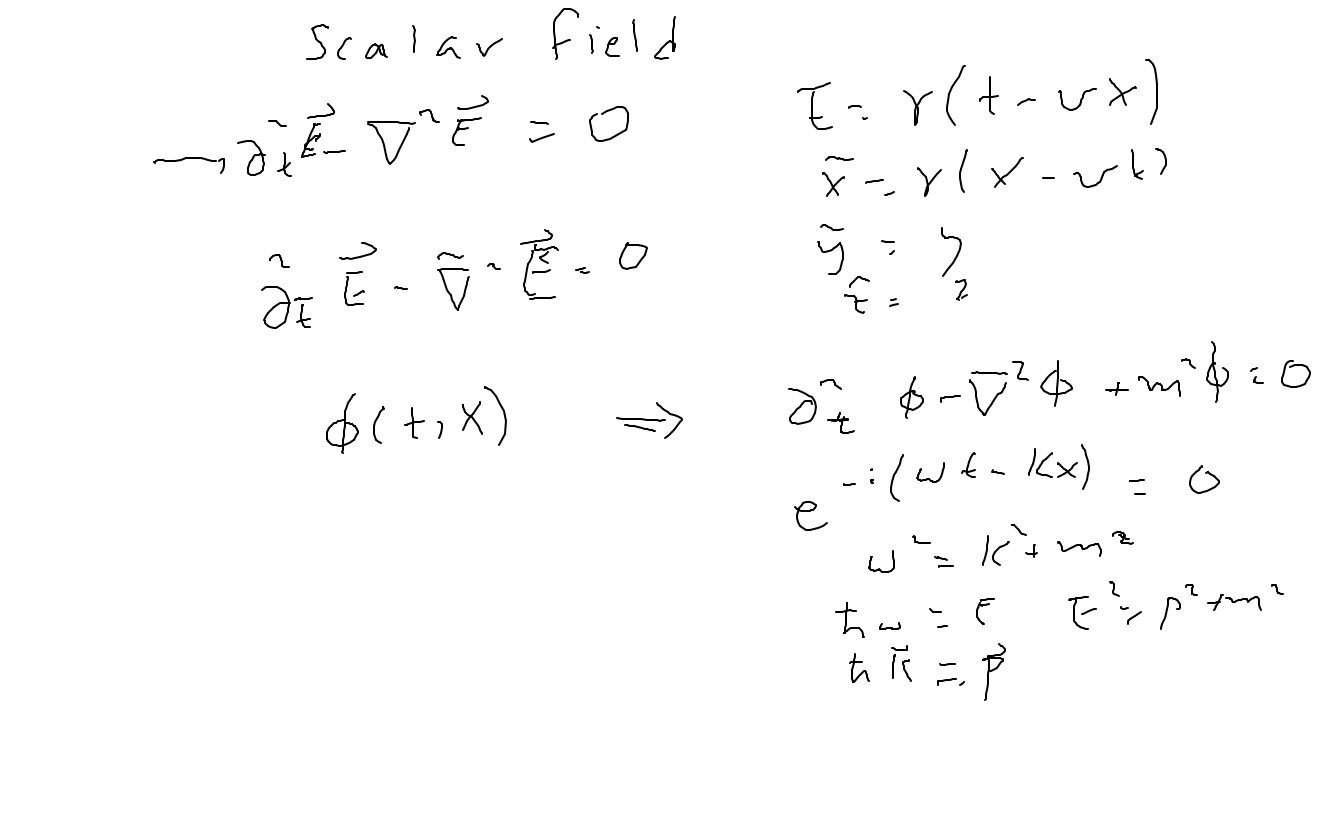 Scalar field
→ ∂²_t E⃗ - ∇² E⃗ = 0
∂²_t̃ E⃗ - ∇̃² E⃗ = 0
t̃ = γ(t - vx)
x̃ = γ(x - vt)
ỹ = y
z̃ = z
ϕ(t, x) ⇒ ∂²_t ϕ - ∇² ϕ + m² ϕ = 0
e^{-i(ωt - kx)} = 0
ω² = k² + m²
ħω = E E² = p² + m²
ħk⃗ = p⃗